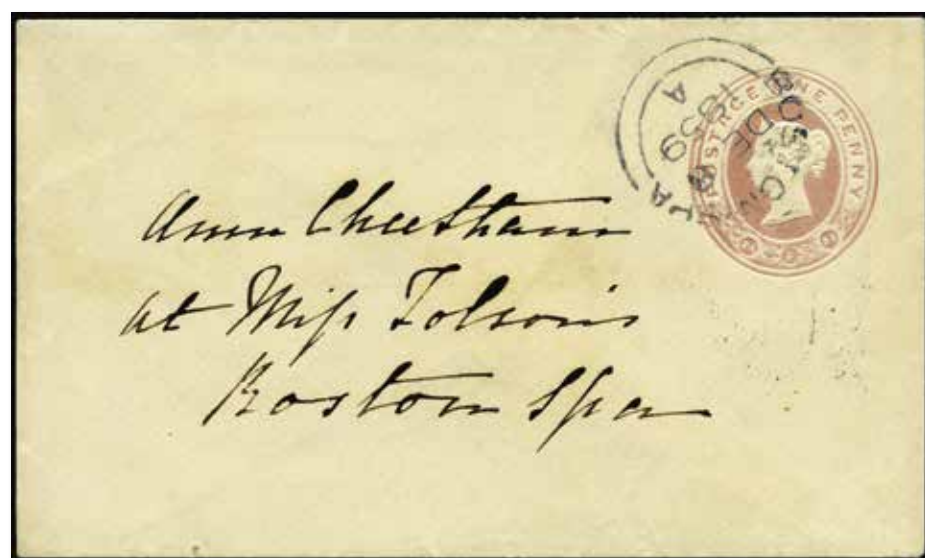 POSTAGE ONE PENNY
A
1859
DE
Ann Cheetham
at Miss Tolson's
Boston Spa